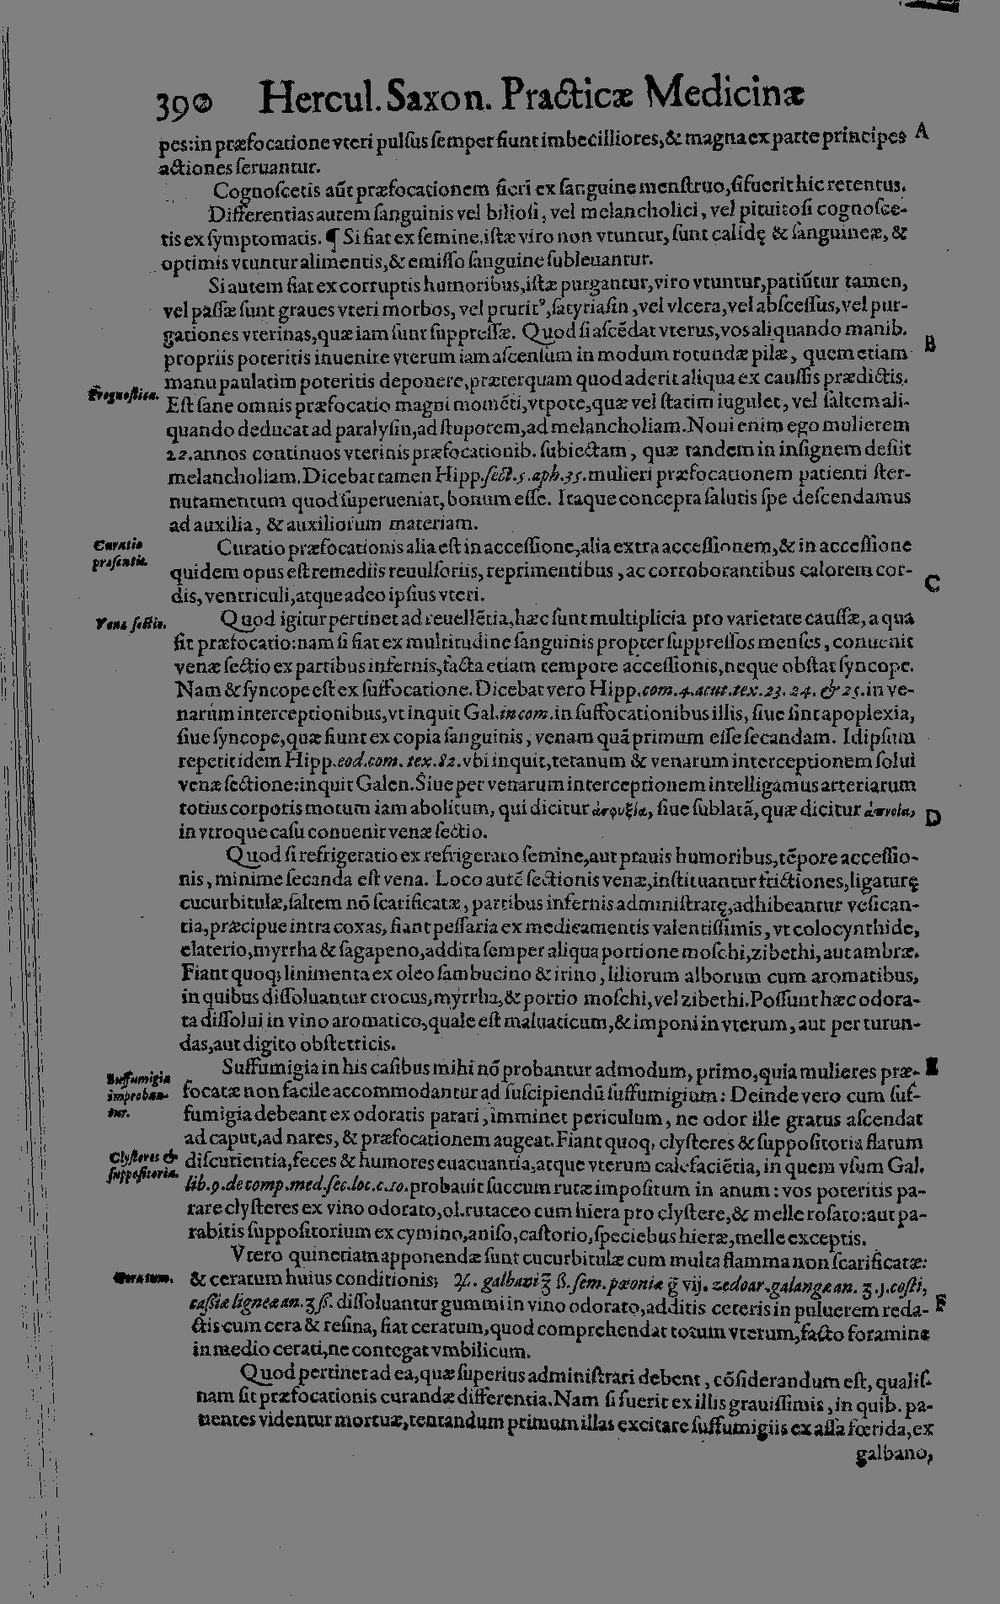 390 Hercul. Saxon. Practicæ Medicinæ
pes: in præfocatione vteri pulſus ſemper fiunt imbecilliores, & magna ex parte principes A
actiones ſeruantur.
Cognoſcetis aūt præfocationem fieri ex ſanguine menſtruo, ſi fuerit hic retentus.
Differentias autem ſanguinis vel bilioſi, vel melancholici, vel pituitoſi cognoſce-
tis ex ſymptomatis. ¶ Si fiat ex ſemine, iſtæ viro non vtuntur, ſunt calidę & ſanguineæ, &
optimis vtuntur alimentis, & emiſſo ſanguine ſubleuantur.
Si autem fiat ex corruptis humoribus, iſtæ purgantur, viro vtuntur, patiūtur tamen,
vel paſſæ ſunt graues vteri morbos, vel prurit9, ſatyriaſin, vel vlcera, vel abſceſſus, vel pur-
gationes vterinas, quæ iam ſunt ſuppreſſæ. Quod ſi aſcēdat vterus, vos aliquando manib.
propriis poteritis inuenire vterum iam aſcenſum in modum rotundæ pilæ, quem etiam B
manu paulatim poteritis deponere, præterquam quod aderit aliqua ex cauſſis prædictis.
Prognoſtica.
Eſt ſane omnis præfocatio magni momēti, vtpote, quæ vel ſtatim iugulet, vel ſaltem ali-
quando deducat ad paralyſin, ad ſtuporem, ad melancholiam. Noui enim ego mulierem
22. annos continuos vterinis præfocationib. ſubiectam, quæ tandem in inſignem deſiit
melancholiam. Dicebat tamen Hipp. ſect. 5. aph. 35. mulieri præfocationem patienti ſter-
nutamentum quod ſuperueniat, bonum eſſe. Itaque concepta ſalutis ſpe deſcendamus
ad auxilia, & auxiliorum materiam.
Curatio
præſentis.
Curatio præfocationis alia eſt in acceſſione, alia extra acceſſionem, & in acceſſione
quidem opus eſt remediis reuulſoriis, reprimentibus, ac corroborantibus calorem cor- C
dis, ventriculi, atque adeo ipſius vteri.
Vena ſectio.
Quod igitur pertinet ad reuellētia, hæc ſunt multiplicia pro varietate cauſſæ, a qua
ſit præfocatio: nam ſi fiat ex multitudine ſanguinis propter ſuppreſſos menſes, conuenit
venæ ſectio ex partibus infernis, facta etiam tempore acceſſionis, neque obſtat ſyncope.
Nam & ſyncope eſt ex ſuffocatione. Dicebat vero Hipp. com. 4. acut. tex. 23. 24. & 25. in ve-
narum interceptionibus, vt inquit Gal. in com. in ſuffocationibus illis, ſiue ſint apoplexia,
ſiue ſyncope, quæ fiunt ex copia ſanguinis, venam quā primum eſſe ſecandam. Idipſum
repetit idem Hipp. eod. com. tex. 82. vbi inquit, tetanum & venarum interceptionem ſolui
venæ ſectione: inquit Galen. Siue per venarum interceptionem intelligamus arteriarum
totius corporis motum iam abolitum, qui dicitur ἀσφυξία, ſiue ſublatā, quæ dicitur ἄπνοια, D
in vtroque caſu conuenit venæ ſectio.
Quod ſi refrigeratio ex refrigerato ſemine, aut prauis humoribus, tēpore acceſſio-
nis, minime ſecanda eſt vena. Loco autē ſectionis venæ, inſtituantur frictiones, ligaturę
cucurbitulæ, ſaltem nō ſcarificatæ, partibus infernis adminiſtratę, adhibeantur veſican-
tia, præcipue intra coxas, fiant peſſaria ex medicamentis valentiſſimis, vt colocynthide,
elaterio, myrrha & ſagapeno, addita ſemper aliqua portione moſchi, zibethi, aut ambræ.
Fiant quoq; linimenta ex oleo ſambucino & irino, liliorum alborum cum aromatibus,
in quibus diſſoluantur crocus, myrrha, & portio moſchi, vel zibethi. Poſſunt hæc odora-
ta diſſolui in vino aromatico, quale eſt maluaticum, & imponi in vterum, aut per turun-
das, aut digito obſtetricis.
Suffumigia
improban-
tur.
Suffumigia in his caſibus mihi nō probantur admodum, primo, quia mulieres præ- E
focatæ non facile accommodantur ad ſuſcipiendū ſuffumigium: Deinde vero cum ſuf-
fumigia debeant ex odoratis parari, imminet periculum, ne odor ille gratus aſcendat
ad caput, ad nares, & præfocationem augeat. Fiant quoq, clyſteres & ſuppoſitoria flatum
Clyſteres &
ſuppoſitoria.
diſcutientia, feces & humores euacuantia, atque vterum calefaciētia, in quem vſum Gal.
lib. 9. de comp. med. ſec. loc. c. 10. probauit ſuccum rutæ impoſitum in anum: vos poteritis pa-
rare clyſteres ex vino odorato, ol. rutaceo cum hiera pro clyſtere, & melle roſato: aut pa-
rabitis ſuppoſitorium ex cymino, aniſo, caſtorio, ſpeciebus hieræ, melle exceptis.
Vtero quinetiam apponendæ ſunt cucurbitulæ cum multa flamma non ſcarificatæ:
Ceratum.
& ceratum huius conditionis; ℞. galbani ʒ ß. ſem. pæoniæ ʒ vij. zedoar. galangæ an. ʒ. j. coſti,
caſſiæ ligneæ an. ʒ ß. diſſoluantur gummi in vino odorato, additis ceteris in puluerem reda- F
ctis cum cera & reſina, fiat ceratum, quod comprehendat totum vterum, facto foramine
in medio cerati, ne contegat vmbilicum.
Quod pertinet ad ea, quæ ſuperius adminiſtrari debent, cōſiderandum eſt, qualiſ-
nam ſit præfocationis curandæ differentia. Nam ſi fuerit ex illis grauiſſimis, in quib. pa-
tientes videntur mortuæ, tentandum primum illas excitare ſuffumigiis ex aſſa fœtida, ex
galbano,